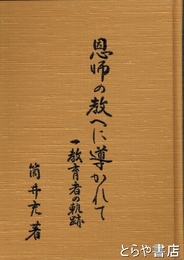 恩師の教へに導かれて
一教育者の軌跡
筒井充著
とらや書店